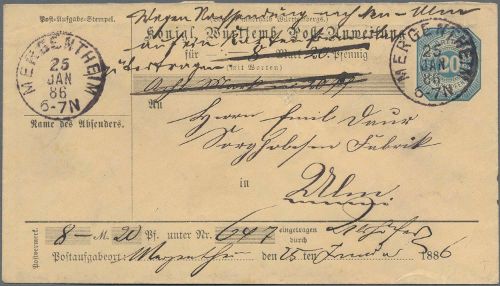 Post-Aufgabe-Stempel.
Wegen Nachsendung nach Ulm
auf ein
Königl. Württemb. Post-Anweisung
für Mark 20 Pfennig
übertragen
(mit Worten)
Acht Mark
MERGENTHEIM
25
JAN
86
6-7N
MERGENTHEIM
25
JAN
86
6-7N
20
An
Herrn Emil Daur
Name des Absenders.
Fabrik
in
Ulm
Postvermerk.
8 - M. 20 Pf. unter Nr. 647 eingetragen durch
Postaufgabeort Mergentheim den 25ten Januar 1886